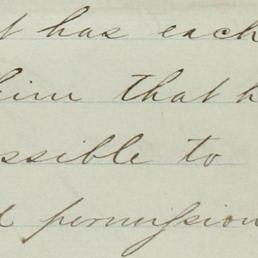 t has each
him that h
ssible to
d permission